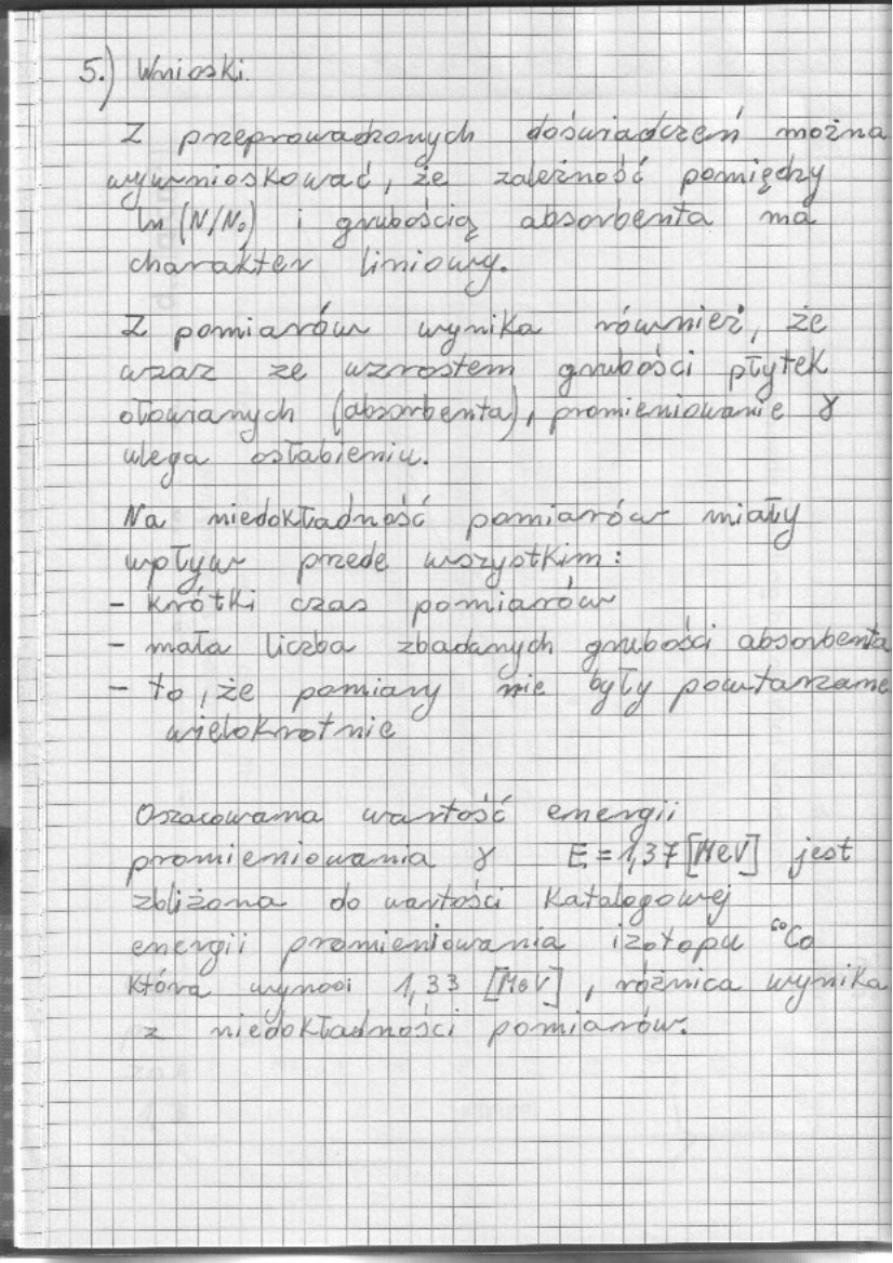 5.) Wnioski.
Z przeprowadzonych doświadczeń można
wywnioskować, że zależność pomiędzy
ln (N/N₀) i grubością absorbenta ma
charakter liniowy.
Z pomiarów wynika również, że
wraz ze wzrostem grubości płytek
ołowianych (absorbenta), promieniowanie γ
ulega osłabieniu.
Na niedokładność pomiarów miały
wpływ przede wszystkim:
- krótki czas pomiarów
- mała liczba zbadanych grubości absorbenta
- to, że pomiary nie były powtarzane
wielokrotnie
Oszacowana wartość energii
promieniowania γ E = 1,37 [MeV] jest
zbliżona do wartości katalogowej
energii promieniowania izotopu ⁶⁰Co
która wynosi 1,33 [MeV], różnica wynika
z niedokładności pomiarów.